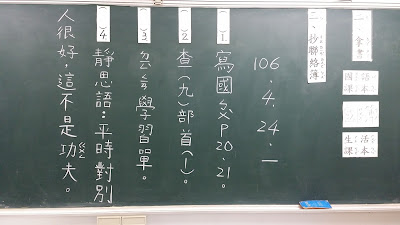 一、拿書
國語
課本
生活
課本
二、抄聯絡簿
106.4.24.一
(1) 寫國ㄆP20.21。
(2) 查(九)部首(一)。
(3) 學習單。
(4) 靜思語:平時對別
人很好,這不是功夫。